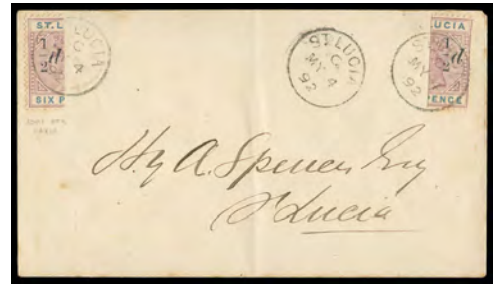 ST.L
½d
SIX P
ST. LUCIA
C
MY 4
92
ST. LUCIA
C
MY 4
92
LUCIA
½d
PENCE
Hy A. Spencer Esq
St Lucia